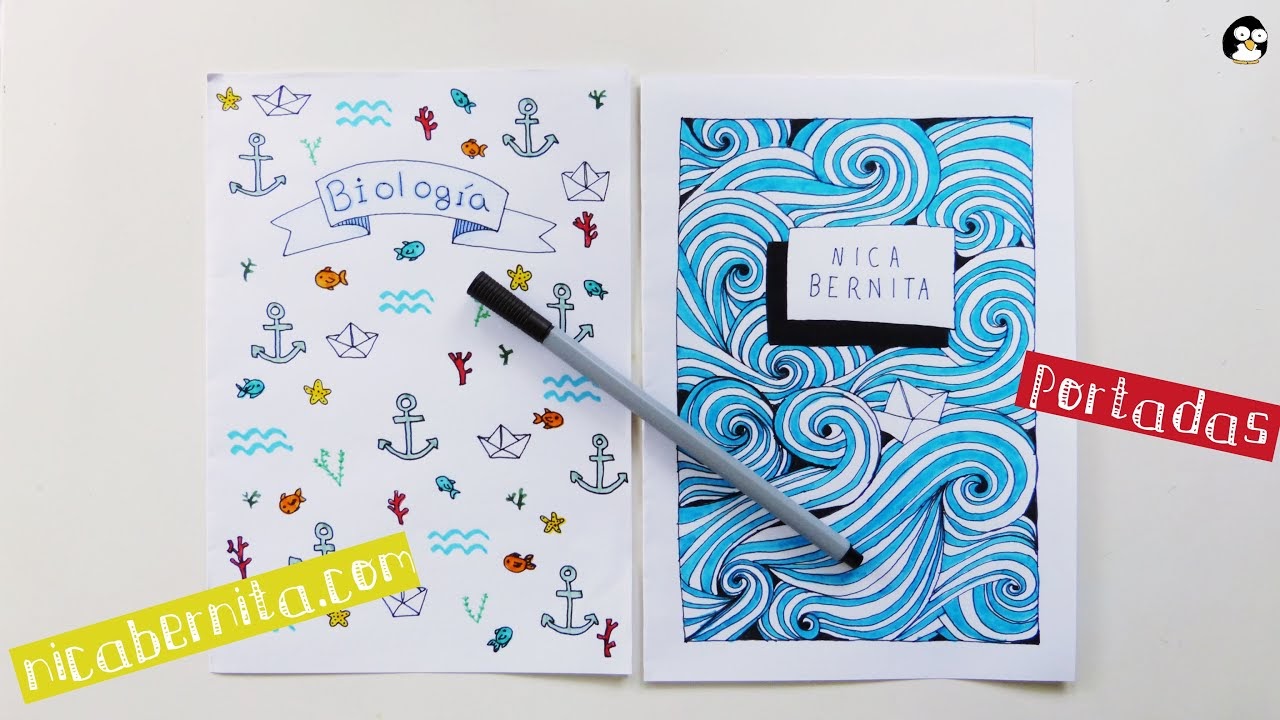 Biología
NICA
BERNITA
portadas
nicabernita.com